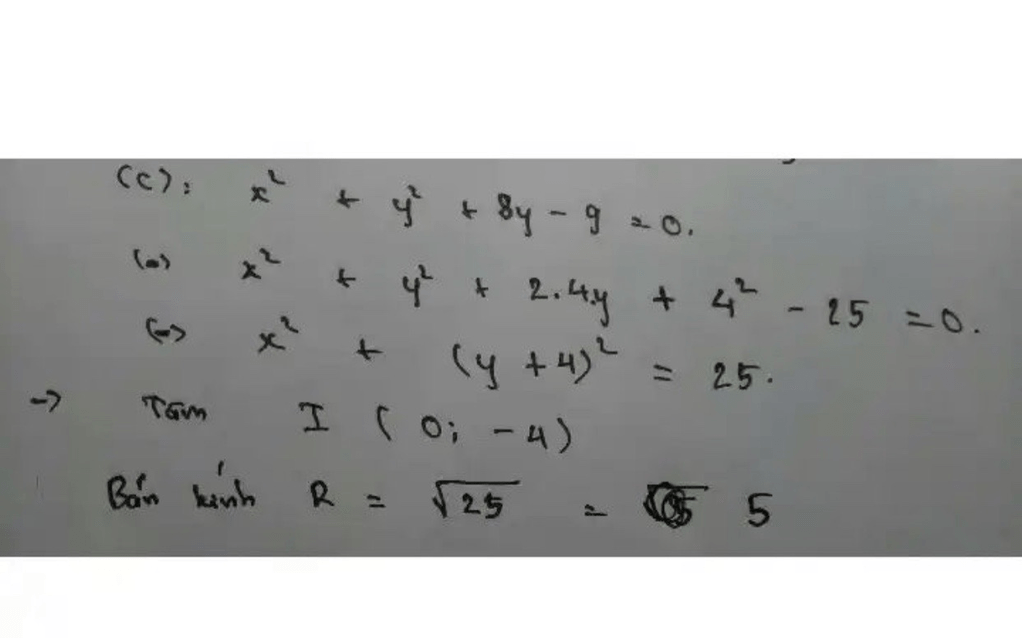 (C): x² + y² + 8y - 9 = 0.
(=) x² + y² + 2.4.y + 4² - 25 = 0.
(=) x² + (y + 4)² = 25.
-> Tâm I (0; -4)
Bán kính R = √25 = 5